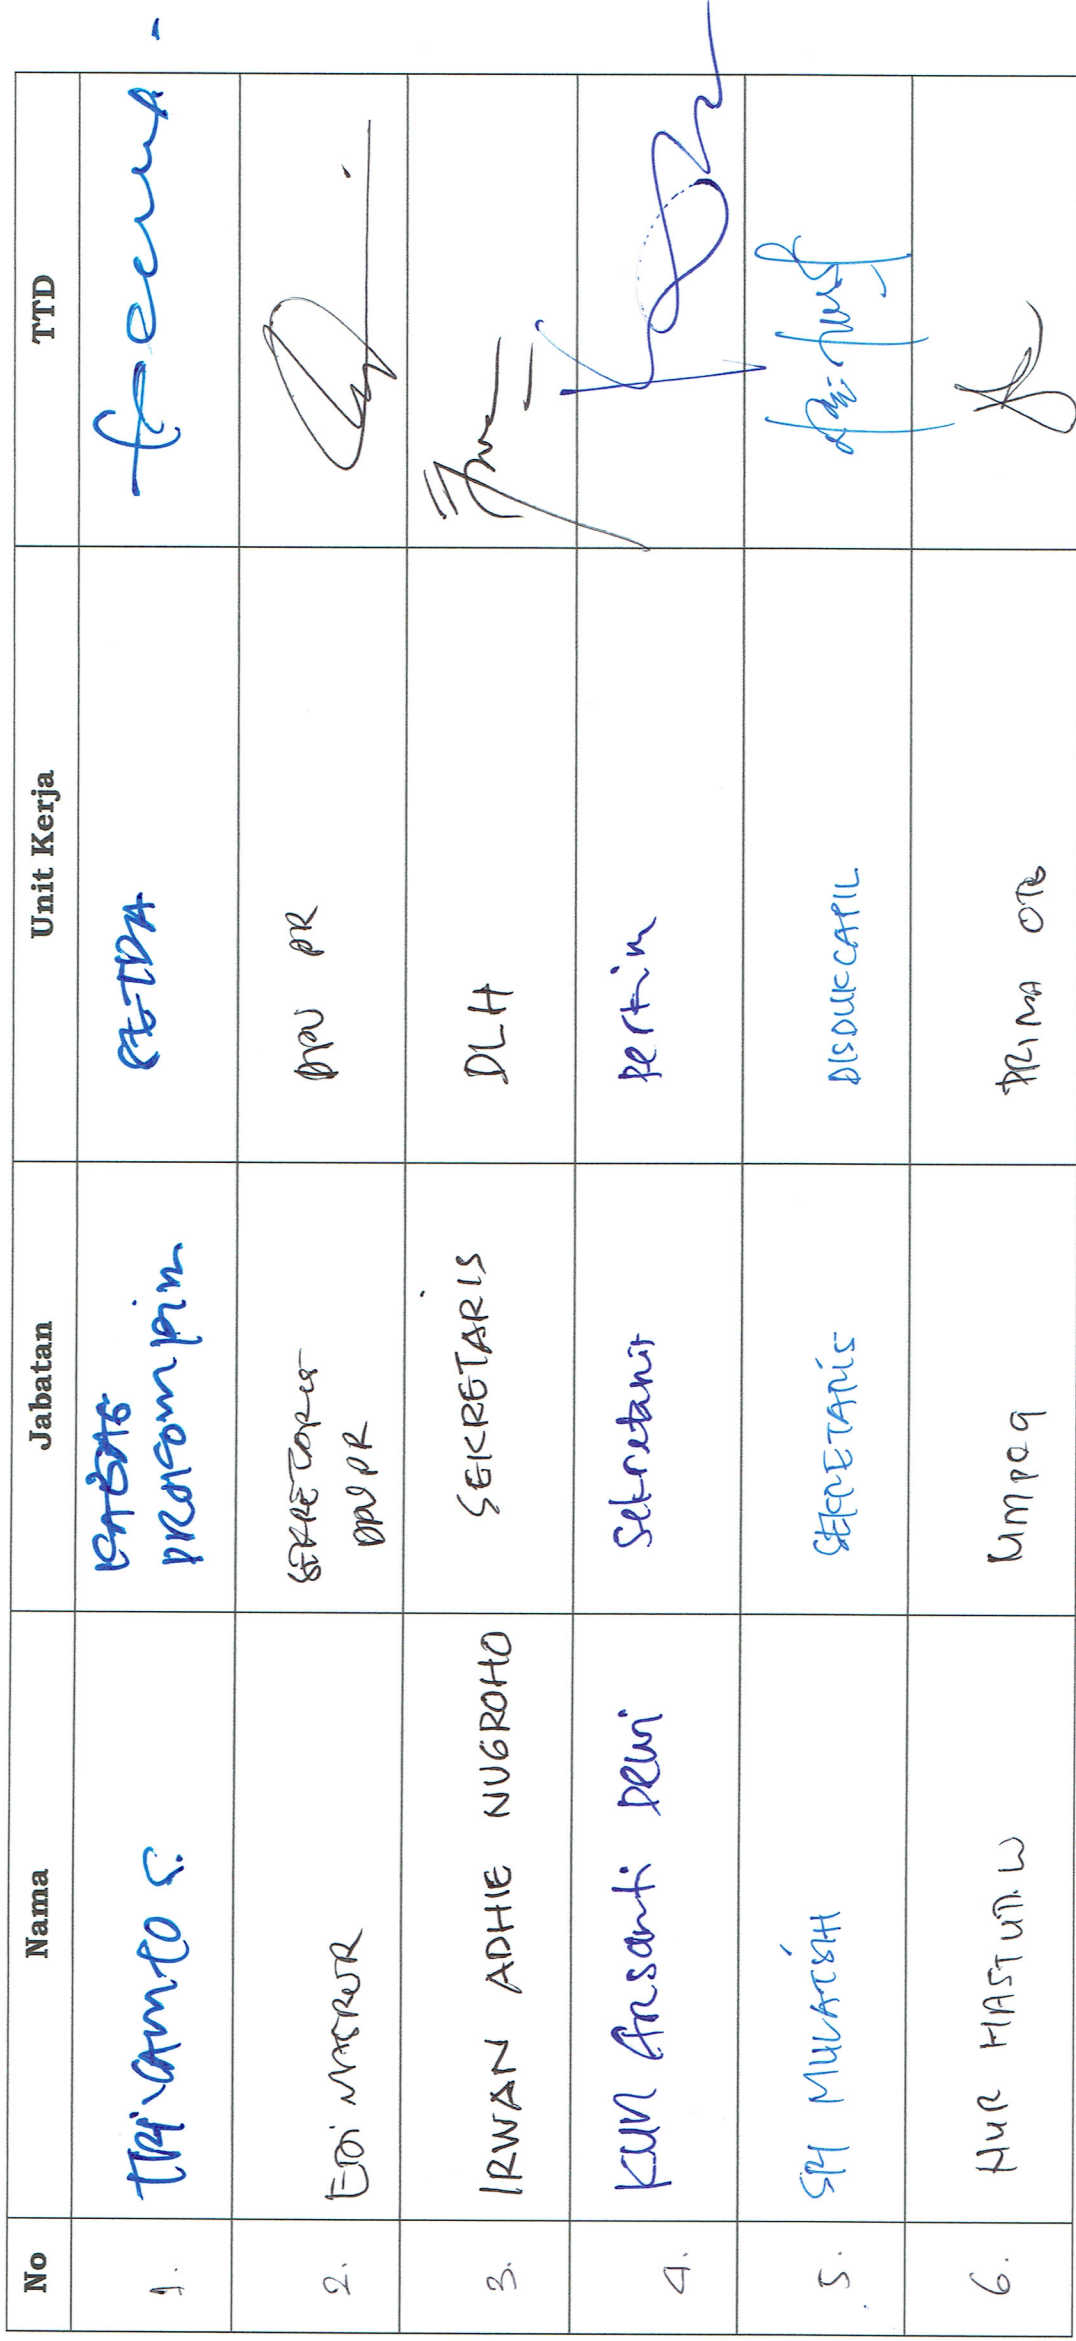 No Nama Jabatan Unit Kerja TTD
1. TRiYANTO S. KABAG PROKOMPIM SETDA
2. EDi MASRUR SEKRETARIS DPUPR DPU PR
3. IRWAN ADHIE NUGROHO SEKRETARIS DLH
4. KUN Arsanti Dewi Sekretaris Perkim
5. SRI MULATSIH SEKRETARIS DISDUKCAPIL
6. NUR HASTUTI. W Umpeg